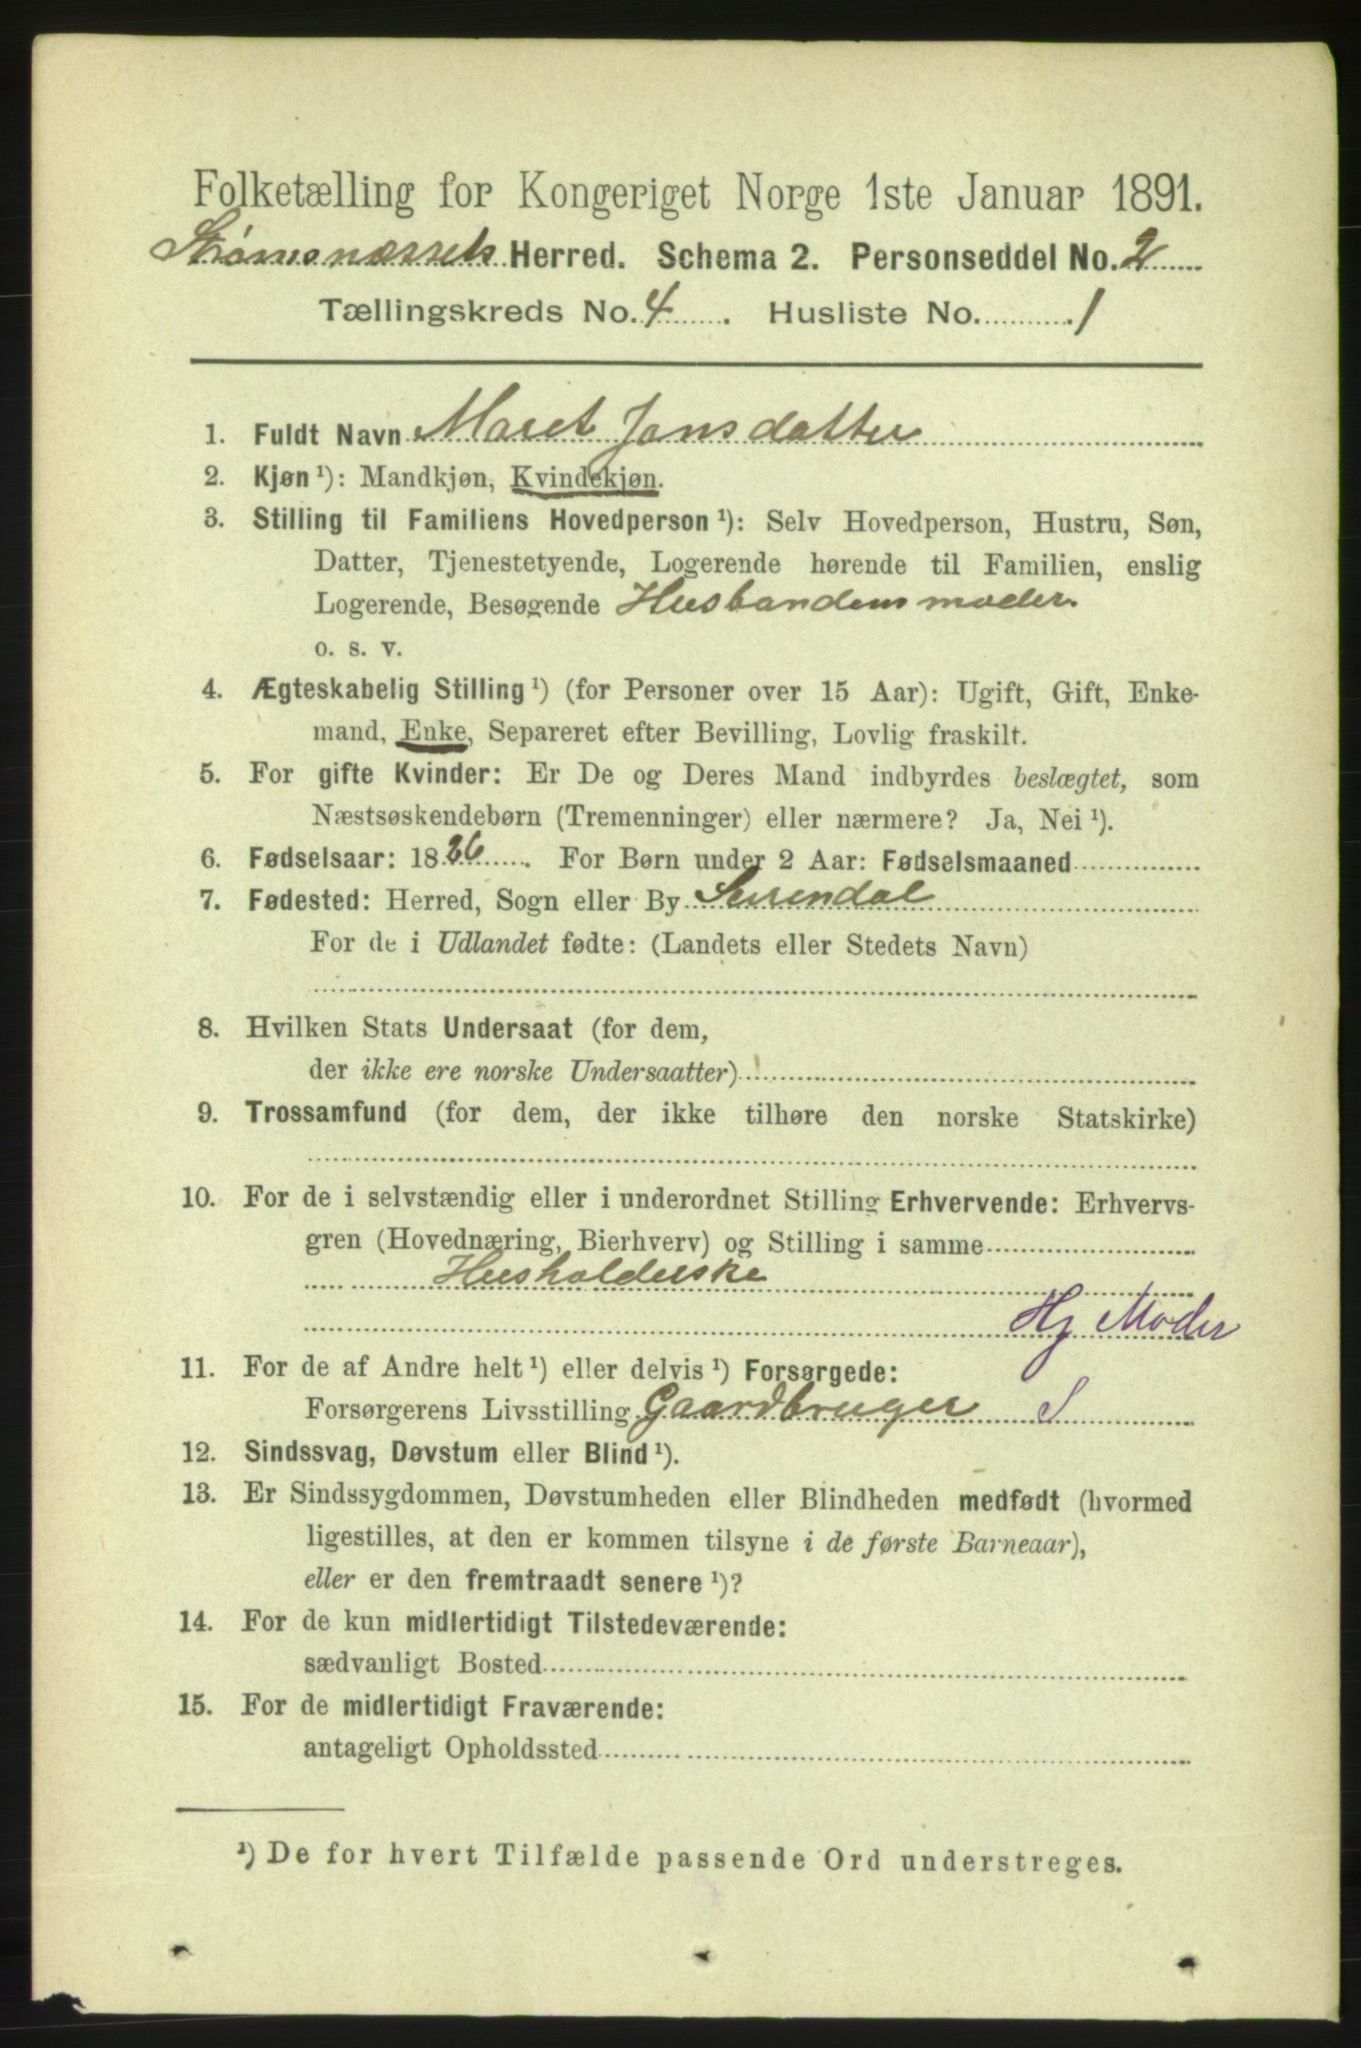 Folketælling for Kongeriget Norge 1ste Januar 1891.
Strømsnæssets Herred. Schema 2. Personseddel No. 2
Tællingskreds No. 4. Husliste No. 1
1. Fuldt Navn Maret Jonsdatter
2. Kjøn ¹): Mandkjøn, Kvindekjøn.
3. Stilling til Familiens Hovedperson ¹): Selv Hovedperson, Hustru, Søn,
Datter, Tjenestetyende, Logerende hørende til Familien, enslig
Logerende, Besøgende Husbondens moder.
o. s. v.
4. Ægteskabelig Stilling ¹) (for Personer over 15 Aar): Ugift, Gift, Enke-
mand, Enke, Separeret efter Bevilling, Lovlig fraskilt.
5. For gifte Kvinder: Er De og Deres Mand indbyrdes beslægtet, som
Næstsøskendebørn (Tremenninger) eller nærmere? Ja, Nei ¹).
6. Fødselsaar: 1826. For Børn under 2 Aar: Fødselsmaaned
7. Fødested: Herred, Sogn eller By Surendal
For de i Udlandet fødte: (Landets eller Stedets Navn)
8. Hvilken Stats Undersaat (for dem,
der ikke ere norske Undersaatter)
9. Trossamfund (for dem, der ikke tilhøre den norske Statskirke)
10. For de i selvstændig eller i underordnet Stilling Erhvervende: Erhvervs-
gren (Hovednæring, Bierhverv) og Stilling i samme
Husholderske
Hj Moder
11. For de af Andre helt ¹) eller delvis ¹) Forsørgede:
Forsørgerens Livsstilling Gaardbruger S
12. Sindssvag, Døvstum eller Blind ¹).
13. Er Sindssygdommen, Døvstumheden eller Blindheden medfødt (hvormed
ligestilles, at den er kommen tilsyne i de første Barneaar),
eller er den fremtraadt senere ¹)?
14. For de kun midlertidigt Tilstedeværende:
sædvanligt Bosted
15. For de midlertidigt Fraværende:
antageligt Opholdssted
¹) De for hvert Tilfælde passende Ord understreges.